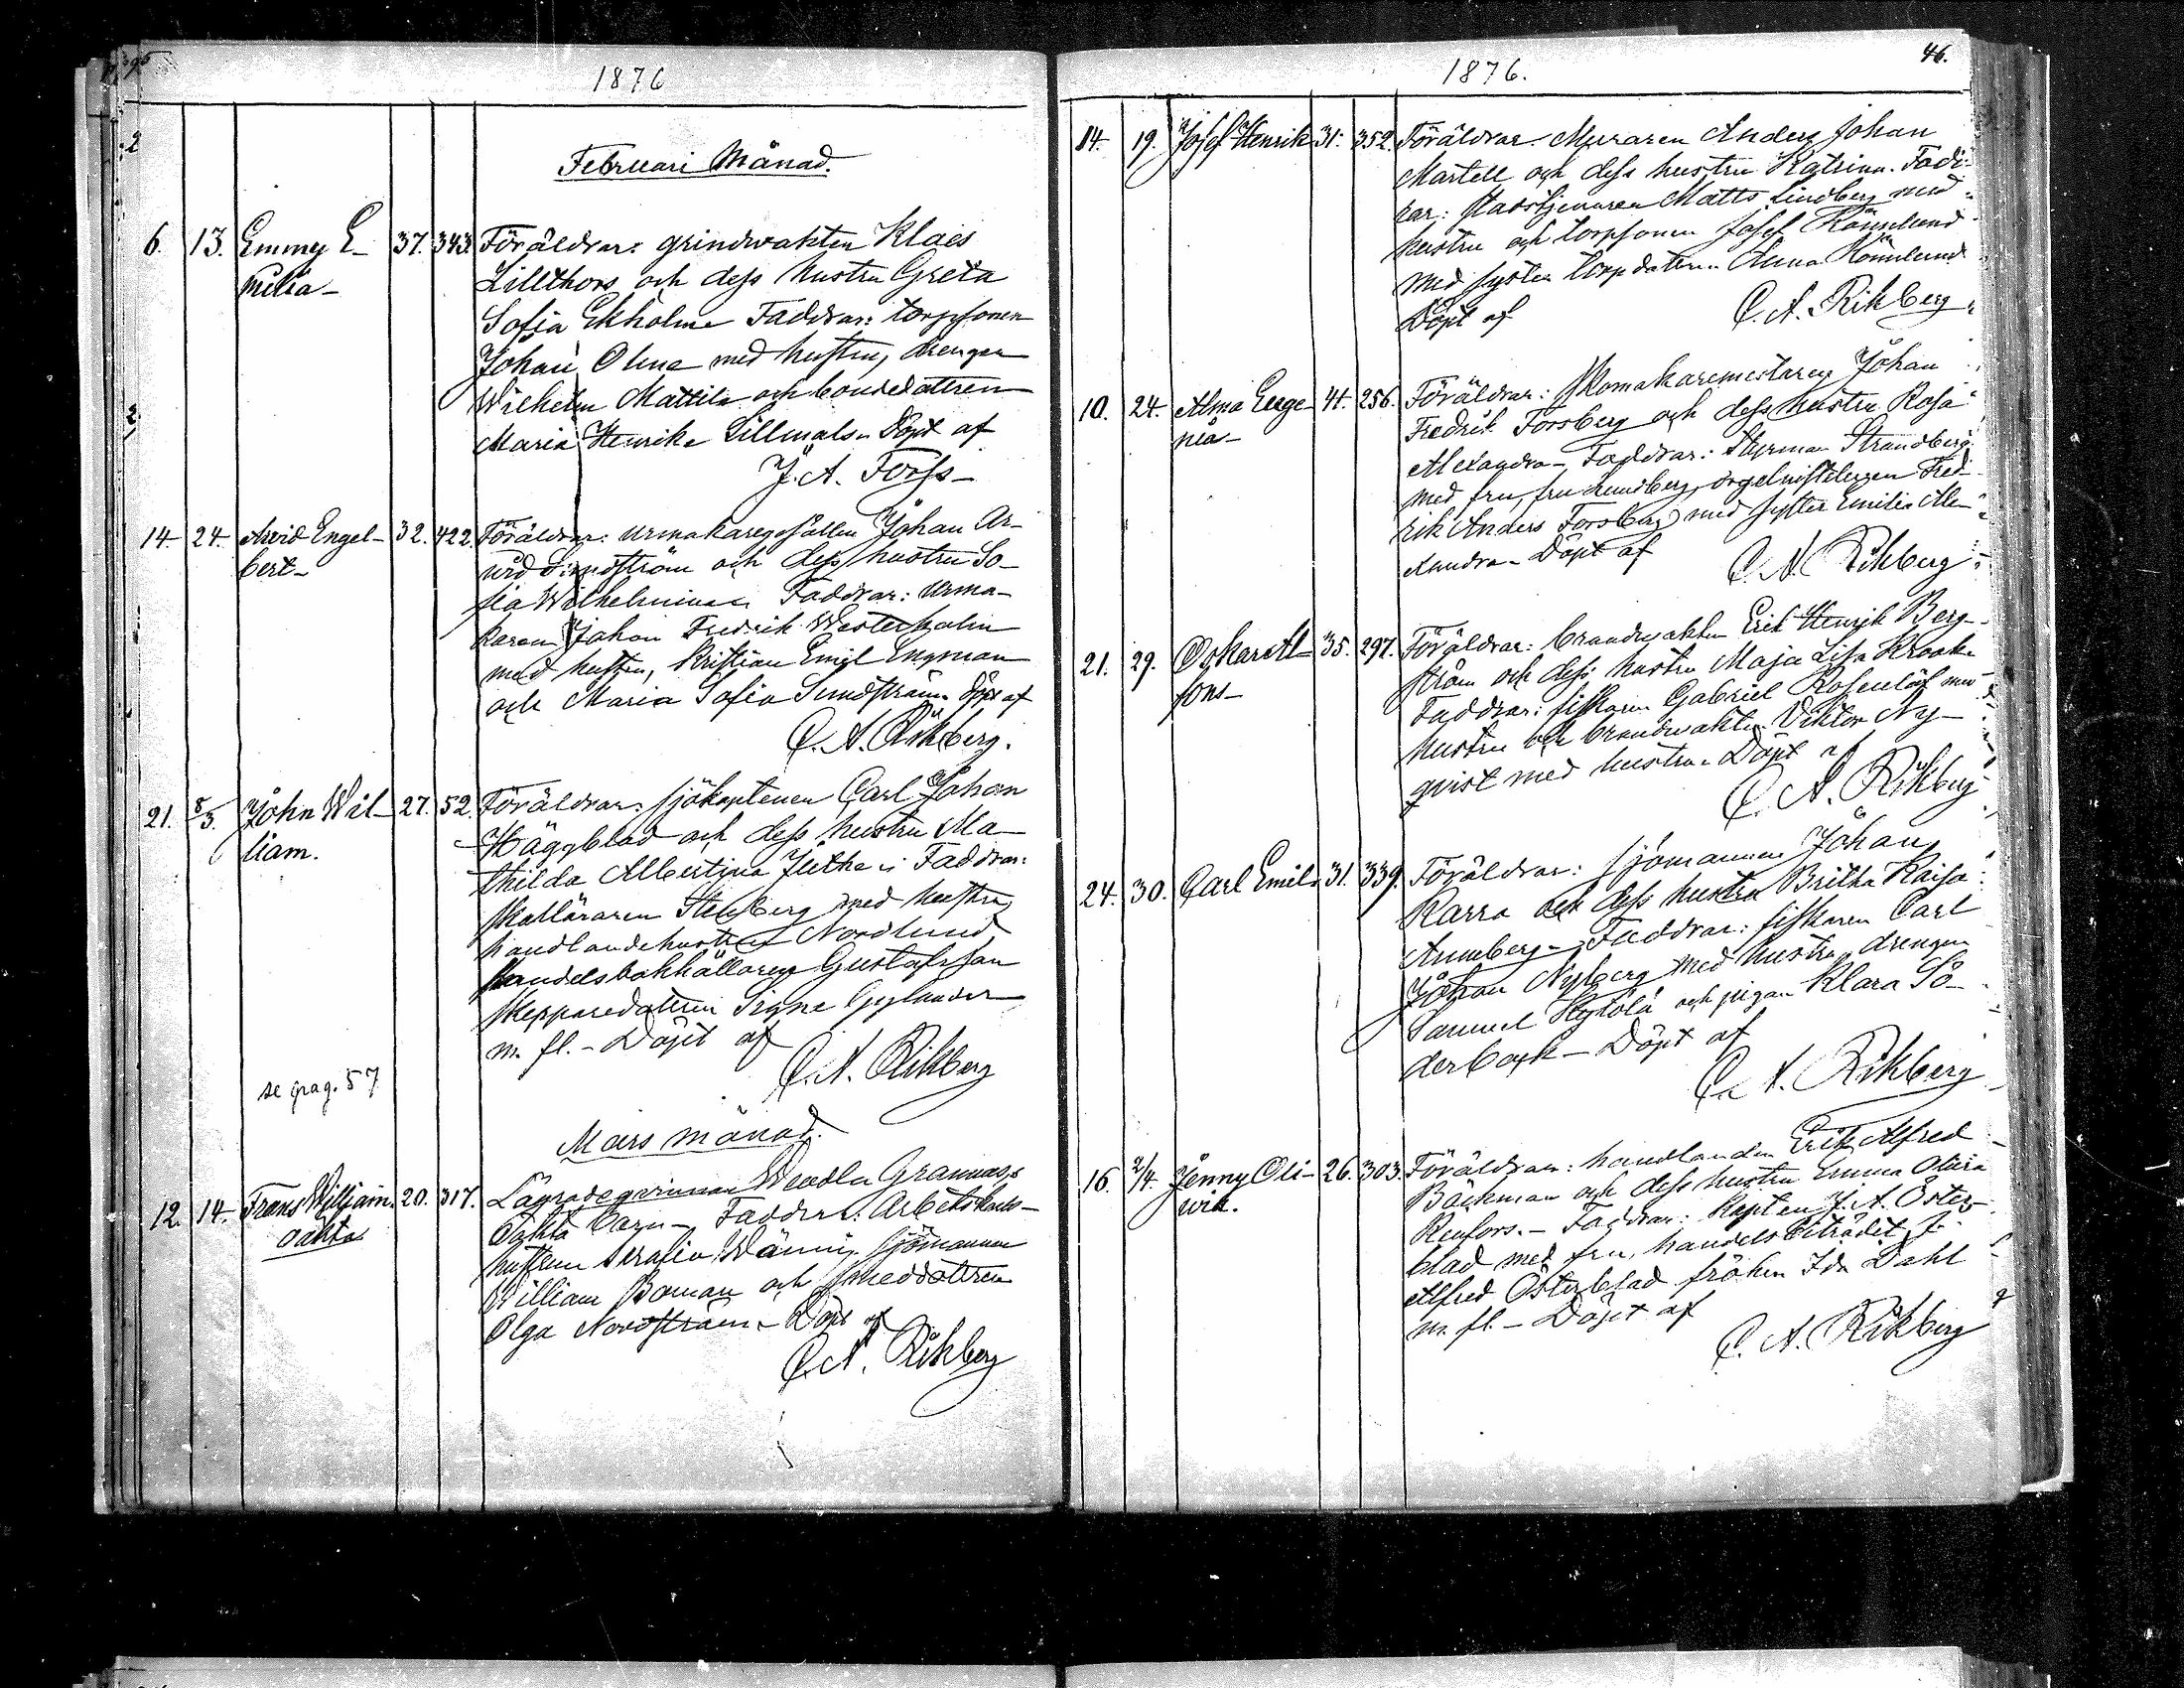 1876
Februari Månad.
6. 13. Emmy E- 37. 343. Föräldrar: grindvakten Klaes
milia- Lillthors och dess hustru Greta
Sofia Ekholm Faddrar: torpsonen
Johan Olme med hustru, drengen
Wilhelm Mattila och bondedottren
Maria Henrika Lillmåls- Döpt af
J. A. Forss-
14. 24. Arvid Engel- 32. 422. Föräldrar: urmakaregesällen Johan Ar-
bert- vid Sundström och dess hustru So-
fia Wilhelmina Faddrar: urma-
karen Johan Fredrik Westerholm
med hustru, Kristian Emil Engman
och Maria Sofia Sundström Döpt af
C. A. Rikberg.
21. 5/3. John Wil- 27. 52. Föräldrar: sjökaptenen Carl Johan
liam. Häggblad och dess hustru Ma-
thilda Albertina Juthe: Faddrar:
skolläraren Stenberg med hustru,
handlandehustrun Nordlund
handelsbokhållaren Gustafsson
skepparedottren Signe Gyllander
m. fl. - Döpt af
C. A. Rikberg
se pag. 57
Mars månad.
12. 14. Frans Wiljam. 20. 317. Lägradeqvinnan Wendla Grannass
oäkta oäkta barn- Faddrar: Arbetskarls-
hustrun Serafia Wänni, sjömannen
William Boman och smeddottren
Olga Nordström- Döpt af
C. A. Rikberg
1876. 46.
14. 19. Josef Henrik 31. 352. Föräldrar: Muraren Anders Johan
Martell och dess hustru Katrina. Fadd-
rar: stadstjenaren Matts Lindberg med
hustru och torpsonen Josef Rönnlund
med syster torpdottren Anna Rönnlund
Döpt af C. A. Rikberg
10. 24. Alma Euge- 41. 256. Föräldrar: skomakaremestaren Johan
nia- Fredrik Forsberg och dess hustru Rosa
Alexandra- Faddrar: Styrman Strandberg
med fru, fru Lundberg, orgelnisteleven Fred-
rik Anders Forsberg med syster Emilia Ale-
xandra- Döpt af C. A. Rikberg
21. 29. Oskar Al- 35. 297. Föräldrar: brandvakten Erik Henrik Berg-
fons- ström och dess hustru Maja Lisa Krook-
Faddrar: fiskaren Gabriel Rosenlöf med
hustru och brandvakten Viktor Ny-
qvist med hustru- Döpt af
C. A. Rikberg
24. 30. Carl Emil 31. 339. Föräldrar: sjömannen Johan
Karra och dess hustru Britha Kaisa
Annberg- Faddrar: fiskaren Carl
Johan Nyberg med hustru, drengen
Samuel Hytölä och pigan Klara Sö-
derback- Döpt af
C. A. Rikberg
16. 2/4. Jenny Oli- 26. 303. Föräldrar: handlanden Erik Alfred
via. Bäckman och dess hustru Emma Olivia
Renfors.- Faddrar: Kapten J. A. Öster-
blad med fru, handelsbiträdet J.
Alfred Österblad fröken Ida Dahl
m. fl - Döpt af
C. A. Rikberg